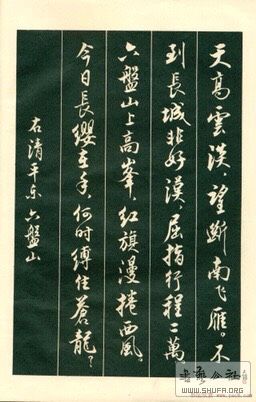 天高雲淡，望斷南飞雁。不
到長城非好漢，屈指行程二萬。
六盤山上高峯，红旗漫捲西風。
今日長纓在手，何时縛住蒼龍？
右清平乐 六盤山
书艺公社
WWW.SHUFA.ORG